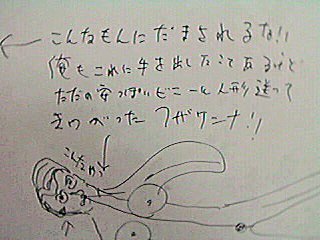 こんなもんにだまされるな!!
俺もこれに手を出したことあるけど
ただの安っぽいビニール人形送って
きやがった フザケンナ!!
こんなやつ